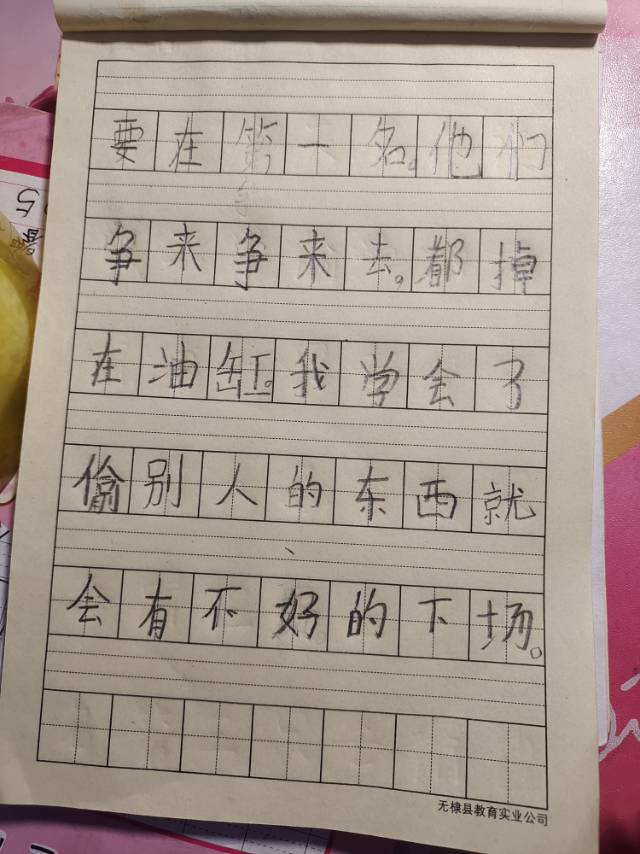 要在第一名。他们
争来争来去。都掉
在油缸。我学会了
偷别人的东西就
会有不好的下场。
无棣县教育实业公司